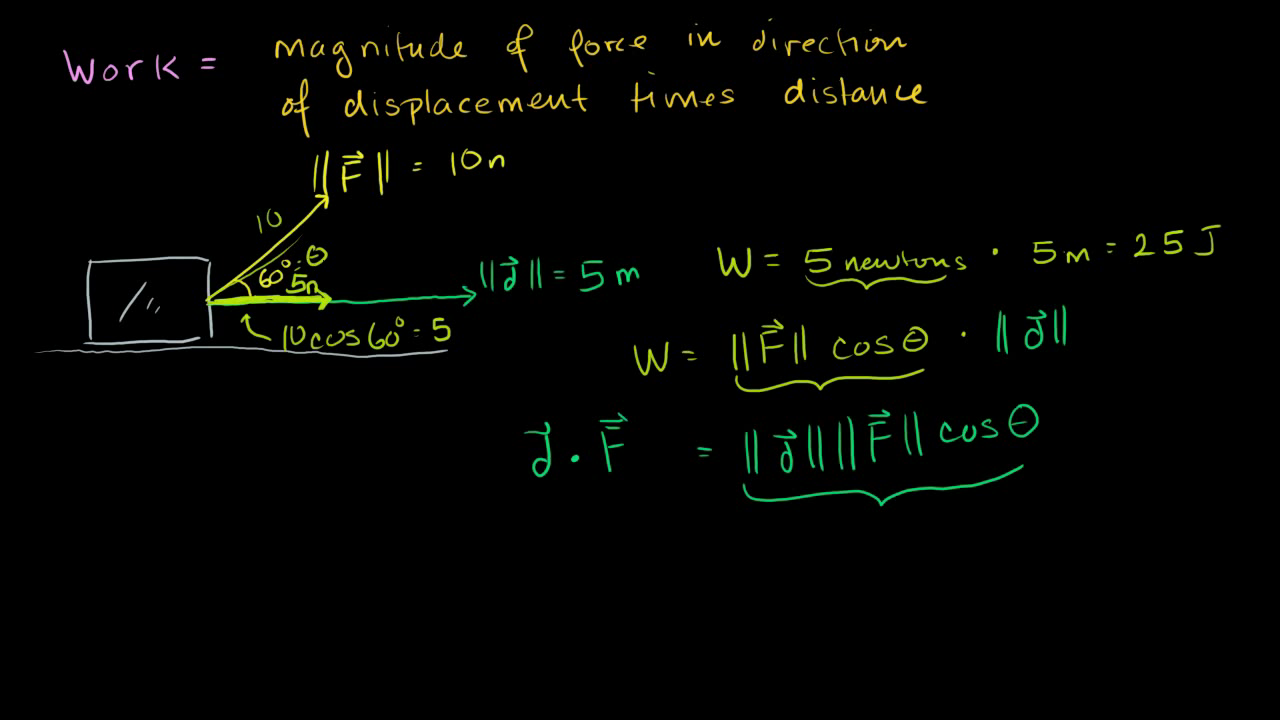 Work = magnitude of force in direction
of displacement times distance
||F⃗|| = 10n
10
60° = θ
5n
||d⃗|| = 5m
10cos60° = 5
W = 5 newtons · 5m = 25J
W = ||F⃗|| cosθ · ||d⃗||
d⃗ · F⃗ = ||d⃗|| ||F⃗|| cosθ